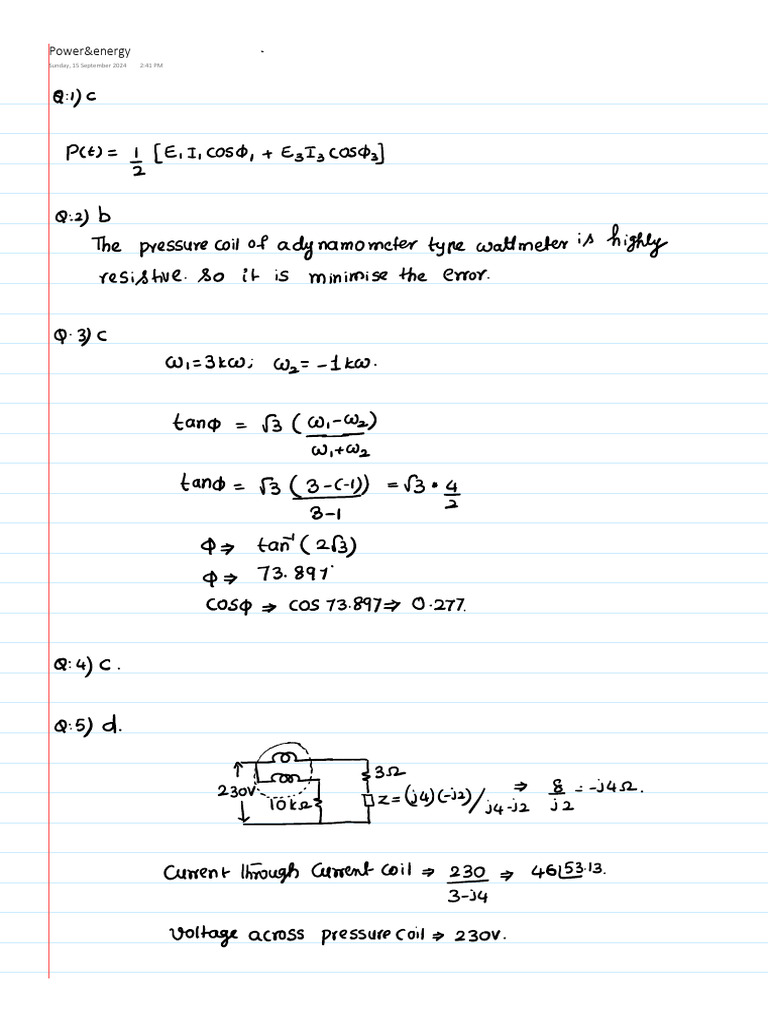 Power&energy
Sunday, 15 September 2024 2:41 PM
Q:1) c
P(t) = 1/2 [E₁ I₁ cosϕ₁ + E₃ I₃ cosϕ₃]
Q:2) b
The pressure coil of a dynamometer type wattmeter is highly
resistive. So it is minimise the error.
Q.3) c
ω₁ = 3kω; ω₂ = -1kω.
tanϕ = √3 (ω₁-ω₂)/ω₁+ω₂
tanϕ = √3 (3-(-1))/3-1 = √3 • 4/2
ϕ ⇒ tan⁻¹(2√3)
ϕ ⇒ 73.897°
cosϕ ⇒ cos 73.897 ⇒ 0.277.
Q:4) c.
Q:5) d.
3Ω
230V
10kΩ
Z = (j4)(-j2)/j4-j2 ⇒ 8/j2 = -j4Ω.
Current through current coil ⇒ 230/3-j4 ⇒ 46∠53.13.
Voltage across pressure coil ⇒ 230V.